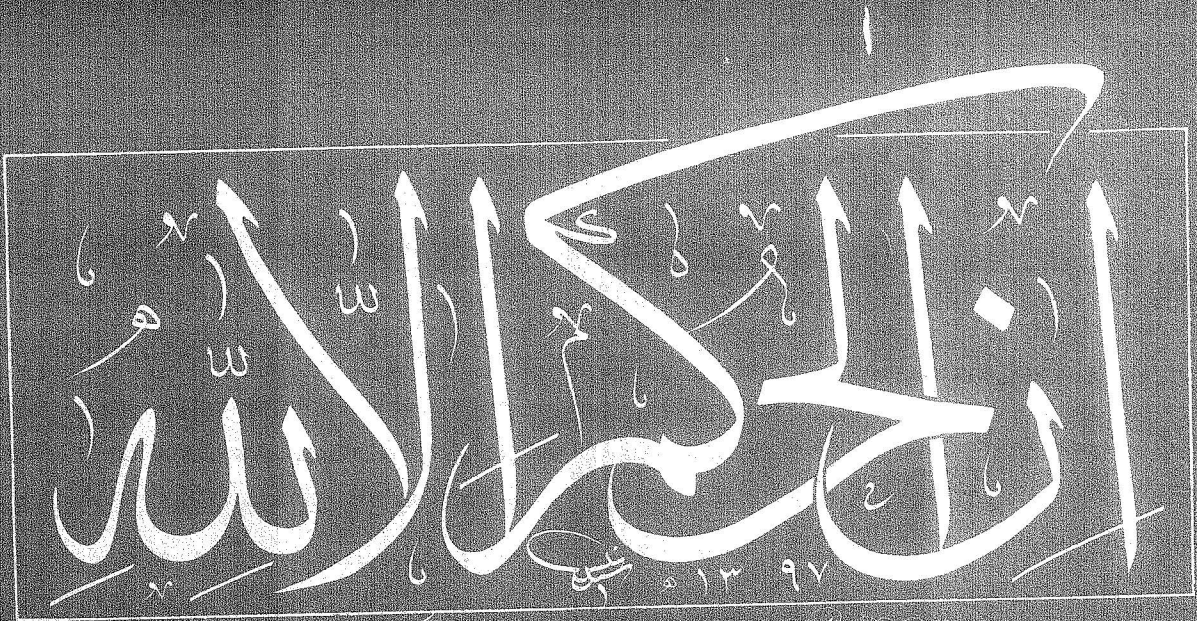 إن الحكم إلا لله
١٣٩٧ ه